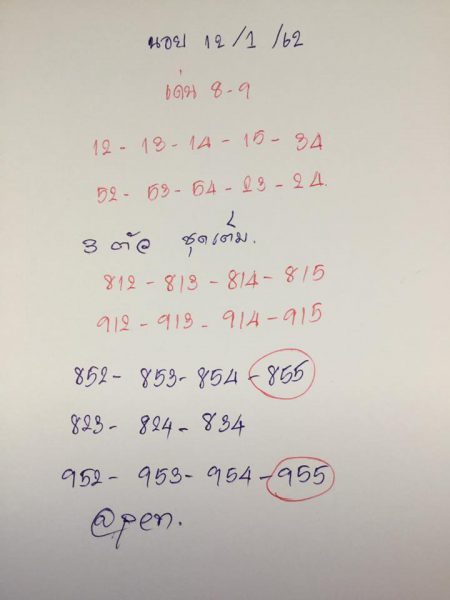 นอย 12/1/62
เด่น 8-9
12-13-14-15-34
52-53-54-23-24.
3 ตัว ชุดเต็ม.
812-813-814-815
912-913-914-915
852-853-854-855
823-824-834
952-953-954-955
@pen.